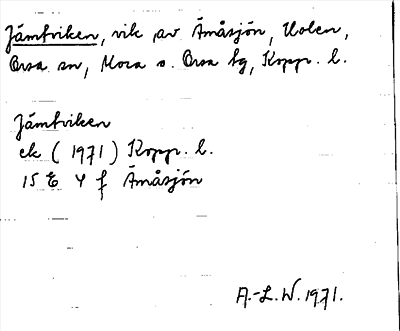 Jämtviken, vik av Ämåsjön, Noben,
Orsa sn, Mora o. Orsa tg, Kopp. l.
Jämtviken
ek (1971) Kopp. l.
15 E 4 f Ämåsjön
A.-L. W. 1971.